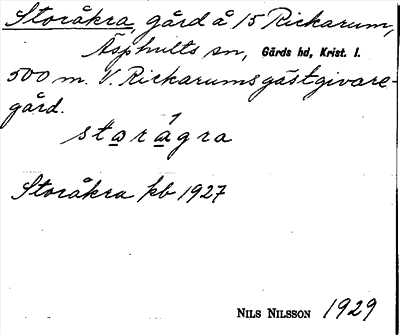 Storåkra, gård å 15 Rickarum,
Äsphults sn, Gärds hd, Krist. l.
500 m. V. Rickarums gästgivare-
gård.
starágra
Storåkra kb 1927
NILS NILSSON 1929